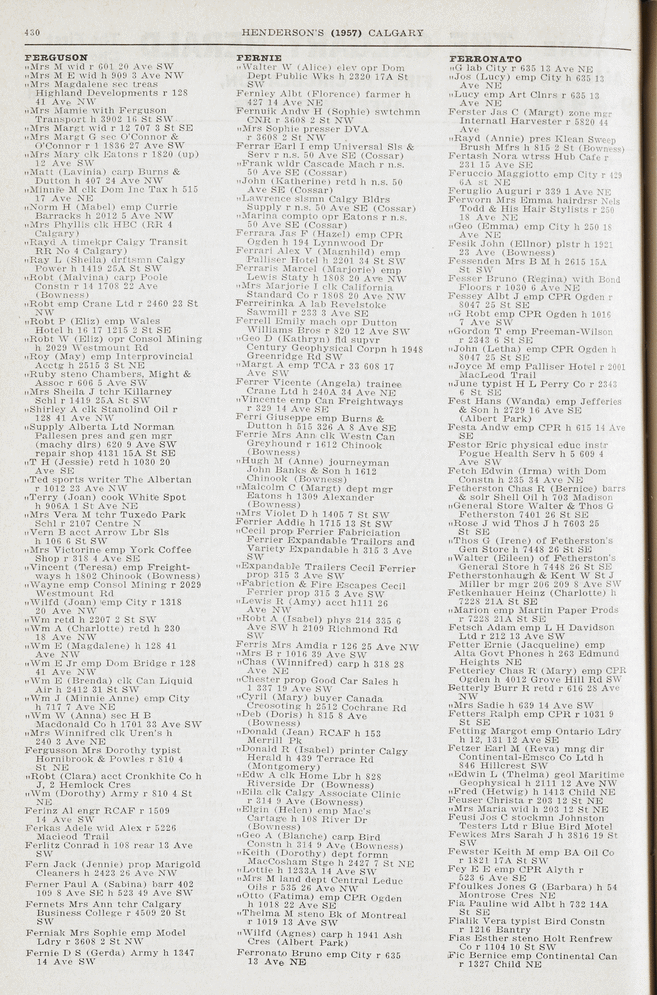 430
HENDERSON'S (1957) CALGARY
FERGUSON
„Mrs M wid r 601 20 Ave SW
„Mrs M E wid h 909 3 Ave NW
„Mrs Magdalene sec treas
Highland Developments r 128
41 Ave NW
„Mrs Mamie with Ferguson
Transport h 3902 16 St SW
„Mrs Margt wid r 12 707 3 St SE
„Mrs Margt G sec O'Connor &
O'Connor r 1 1836 27 Ave SW
„Mrs Mary clk Eatons r 1820 (up)
12 Ave SW
„Matt (Lavinia) carp Burns &
Dutton h 407 24 Ave NW
„Minnie M clk Dom Inc Tax h 515
17 Ave NE
„Norm H (Mabel) emp Currie
Barracks h 2012 5 Ave NW
„Mrs Phyllis clk HBC (RR 4
Calgary)
„Rayd A timekpr Calgy Transit
RR No 4 Calgary)
„Ray L (Sheila) drftsmn Calgy
Power h 1419 25A St SW
„Robt (Malvina) carp Poole
Constn r 14 1708 22 Ave
(Bowness)
„Robt emp Crane Ltd r 2460 23 St
NW
„Robt P (Eliz) emp Wales
Hotel h 16 17 1215 2 St SE
„Robt W (Eliz) opr Consol Mining
h 2029 Westmount Rd
„Roy (May) emp Interprovincial
Acctg h 2515 3 St NE
„Ruby steno Chambers, Might &
Assoc r 606 5 Ave SW
„Mrs Sheila J tchr Killarney
Schl r 1419 25A St SW
„Shirley A clk Stanolind Oil r
128 41 Ave NW
„Supply Alberta Ltd Norman
Pallesen pres and gen mgr
(machy dlrs) 620 9 Ave SW
repair shop 4131 15A St SE
„T H (Jessie) retd h 1030 20
Ave SE
„Ted sports writer The Albertan
r 1012 23 Ave NW
„Terry (Joan) cook White Spot
h 906A 1 St Ave NE
„Mrs Vera M tchr Tuxedo Park
Schl r 2107 Centre N
„Vern B acct Arrow Lbr Sls
h 106 6 St SW
„Mrs Victorine emp York Coffee
Shop r 318 4 Ave SE
„Vincent (Teresa) emp Freight-
ways h 1802 Chinook (Bowness)
„Wayne emp Consol Mining r 2029
Westmount Rd
„Wilfd (Joan) emp City r 1318
20 Ave NW
„Wm retd h 2207 2 St SW
„Wm A (Charlotte) retd h 230
18 Ave NW
„Wm E (Magdalene) h 128 41
Ave NW
„Wm E Jr emp Dom Bridge r 128
41 Ave NW
„Wm E (Brenda) clk Can Liquid
Air h 2412 31 St SW
„Wm J (Minnie Anne) emp City
h 717 7 Ave NE
„Wm W (Anna) sec H B
Macdonald Co h 1701 33 Ave SW
„Mrs Winnifred clk Uren's h
240 3 Ave NE
Fergusson Mrs Dorothy typist
Hornibrook & Powles r 810 4
St NE
„Robt (Clara) acct Cronkhite Co h
J, 2 Hemlock Cres
„Wm (Dorothy) Army r 810 4 St
NE
Ferinz Al engr RCAF r 1509
14 Ave SW
Ferkas Adele wid Alex r 5226
Macleod Trail
Ferlitz Conrad h 108 rear 13 Ave
SW
Fern Jack (Jennie) prop Marigold
Cleaners h 2423 26 Ave NW
Ferner Paul A (Sabina) barr 402
109 8 Ave SE h 523 49 Ave SW
Fernets Mrs Ann tchr Calgary
Business College r 4509 20 St
SW
Ferniak Mrs Sophie emp Model
Ldry r 3608 2 St NW
Fernie D S (Gerda) Army h 1347
14 Ave SW
FERNIE
„Walter W (Alice) elev opr Dom
Dept Public Wks h 2320 17A St
SW
Fernley Albt (Florence) farmer h
427 14 Ave NE
Fernuik Andw H (Sophie) swtchmn
CNR r 3608 2 St NW
„Mrs Sophie presser DVA
r 3608 2 St NW
Ferrar Earl I emp Universal Sls &
Serv r n.s. 50 Ave SE (Cossar)
„Frank wldr Cascade Mach r n.s.
50 Ave SE (Cossar)
„John (Katherine) retd h n.s. 50
Ave SE (Cossar)
„Lawrence slsmn Calgy Bldrs
Supply r n.s. 50 Ave SE (Cossar)
„Marina compto opr Eatons r n.s.
50 Ave SE (Cossar)
Ferrara Jas F (Hazel) emp CPR
Ogden h 194 Lynnwood Dr
Ferrari Alex V (Magnhild) emp
Palliser Hotel h 2201 34 St SW
Ferraris Marcel (Marjorie) emp
Lewis Staty h 1808 20 Ave NW
„Mrs Marjorie I clk California
Standard Co r 1808 20 Ave NW
Ferreirinka A lab Revelstoke
Sawmill r 233 3 Ave SE
Ferrell Emily mach opr Dutton
Williams Bros r 820 12 Ave SW
„Geo D (Kathryn) fld supvr
Century Geophysical Corpn h 1948
Greenridge Rd SW
„Margt A emp TCA r 33 608 17
Ave SW
Ferrer Vicente (Angela) trainee
Crane Ltd h 240A 34 Ave NE
„Vincente emp Can Freightways
r 329 14 Ave SE
Ferri Giuseppe emp Burns &
Dutton h 515 326 A 8 Ave SE
Ferrie Mrs Ann clk Westn Can
Greyhound r 1612 Chinook
(Bowness)
„Hugh M (Anne) journeyman
John Banks & Son h 1612
Chinook (Bowness)
„Malcolm C (Margt) dept mgr
Eatons h 1309 Alexander
(Bowness)
„Mrs Violet D h 1405 7 St SW
Ferrier Addie h 1715 13 St SW
„Cecil prop Ferrier Fabriciation
Ferrier Expandable Trailors and
Variety Expandable h 315 3 Ave
SW
„Expandable Trailers Cecil Ferrier
prop 315 3 Ave SW
„Fabriction & Fire Escapes Cecil
Ferrier prop 315 3 Ave SW
„Lewis R (Amy) acct h111 26
Ave NW
„Robt A (Isabel) phys 214 335 6
Ave SW h 2109 Richmond Rd
SW
Ferris Mrs Amdia r 126 25 Ave NW
„Mrs B r 1016 39 Ave SW
„Chas (Winnifred) carp h 318 28
Ave NE
„Chester prop Good Car Sales h
1 337 19 Ave SW
„Cyril (Mary) buyer Canada
Creosoting h 2512 Cochrane Rd
„Deb (Doris) h 815 8 Ave
(Bowness)
„Donald (Jean) RCAF h 153
Merrill Pk
„Donald R (Isabel) printer Calgy
Herald h 439 Terrace Rd
(Montgomery)
„Edw A clk Home Lbr h 828
Riverside Dr (Bowness)
„Ella clk Calgy Associate Clinic
r 314 9 Ave (Bowness)
„Elgin (Helen) emp Mac's
Cartage h 108 River Dr
(Bowness)
„Geo A (Blanche) carp Bird
Constn h 314 9 Ave (Bowness)
„Keith (Dorothy) dept formn
MacCosham Stge h 2427 7 St NE
„Lottie h 1233A 14 Ave SW
„Mrs M land dept Central Leduc
Oils r 535 26 Ave NW
„Otto (Fatima) emp CPR Ogden
h 1018 22 Ave SE
„Thelma M steno Bk of Montreal
r 1019 13 Ave SW
„Wilfd (Agnes) carp h 1941 Ash
Cres (Albert Park)
Ferronato Bruno emp City r 635
13 Ave NE
FERRONATO
„G lab City r 635 13 Ave NE
„Jos (Lucy) emp City h 635 13
Ave NE
„Lucy emp Art Clnrs r 635 13
Ave NE
Ferster Jas C (Margt) zone mgr
Internatl Harvester r 5820 44
Ave
„Rayd (Annie) pres Klean Sweep
Brush Mfrs h 815 2 St (Bowness)
Fertash Nora wtrss Hub Cafe r
231 15 Ave SE
Feruccio Maggiotto emp City r 429
6A st NE
Feruglio Auguri r 339 1 Ave NE
Ferworn Mrs Emma hairdrsr Nels
Todd & His Hair Stylists r 250
18 Ave NE
„Geo (Emma) emp City h 250 18
Ave NE
Fesik John (Ellnor) plstr h 1921
23 Ave (Bowness)
Fessenden Mrs B M h 2615 15A
St SW
Fesser Bruno (Regina) with Bond
Floors r 1030 6 Ave NE
Fessey Albt J emp CPR Ogden r
8047 25 St SE
„G Robt emp CPR Ogden h 1016
7 Ave SW
„Gordon T emp Freeman-Wilson
r 2343 6 St SE
„John (Letha) emp CPR Ogden h
8047 25 St SE
„Joyce M emp Palliser Hotel r 2001
MacLeod Trail
„June typist H L Perry Co r 2343
6 St SE
Fest Hans (Wanda) emp Jefferies
& Son h 2729 16 Ave SE
(Albert Park)
Festa Andw emp CPR h 615 14 Ave
SE
Festor Eric physical educ instr
Pogue Health Serv h 5 609 4
Ave SW
Fetch Edwin (Irma) with Dom
Constn h 235 34 Ave NE
Fetherston Chas R (Bernice) barrs
& solr Shell Oil h 703 Madison
„General Store Walter & Thos G
Fetherston 7401 26 St SE
„Rose J wid Thos J h 7603 25
St SE
„Thos G (Irene) of Fetherston's
Gen Store h 7448 26 St SE
„Walter (Eileen) of Fetherston's
General Store h 7448 26 St SE
Fetherstonhaugh & Kent W St J
Miller br mgr 206 209 8 Ave SW
Fetkenhauer Heinz (Charlotte) h
7228 21A St SE
„Marion emp Martin Paper Prods
r 7228 21A St SE
Fetsch Adam emp L H Davidson
Ltd r 212 13 Ave SW
Fetter Ernie (Jacqueline) emp
Alta Govt Phones h 263 Edmund
Heights NE
Fetterley Chas R (Mary) emp CPR
Ogden h 4012 Grove Hill Rd SW
Fetterly Burr R retd r 616 28 Ave
NW
„Mrs Sadie h 639 14 Ave SW
Fetters Ralph emp CPR r 1031 9
St SE
Fetting Margot emp Ontario Ldry
h 12, 131 12 Ave SE
Fetzer Earl M (Reva) mng dir
Continental-Emsco Co Ltd h
846 Hillcrest SW
„Edwin L (Thelma) geol Maritime
Geophysical h 2111 12 Ave NW
„Fred (Hetwig) h 1413 Child NE
Feuser Christa r 203 12 St NW
„Mrs Maria wid h 203 12 St NE
Feusi Jos C stockmn Johnston
Testers Ltd r Blue Bird Motel
Fewkes Mrs Sarah J h 3816 19 St
SW
Fewster Keith M emp BA Oil Co
r 1821 17A St SW
Fey E E emp CPR Alyth r
523 6 Ave SE
Ffoulkes Jones G (Barbara) h 54
Montrose Cres NE
Fia Pauline wid Albt h 732 14A
St SE
Fialik Vera typist Bird Constn
r 1216 Bantry
Fias Esther steno Holt Renfrew
Co r 1104 10 St SW
Fic Bernice emp Continental Can
r 1327 Child NE